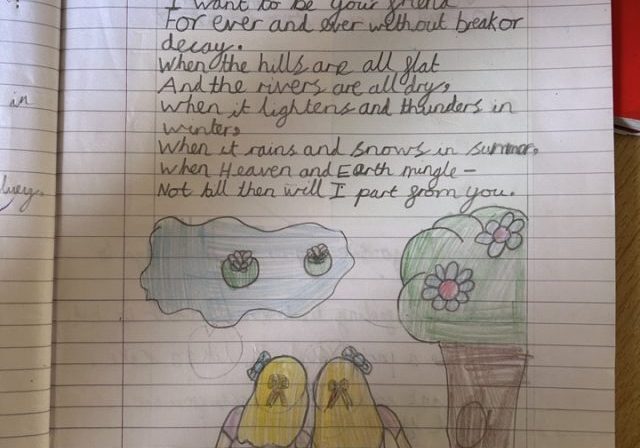 I want to be your friend
For ever and ever without break or
decay.
When the hills are all flat
And the rivers are all dry,
When it lightens and thunders in
winter,
When it rains and snows in summer,
When Heaven and Earth mingle -
Not till then will I part from you.
in